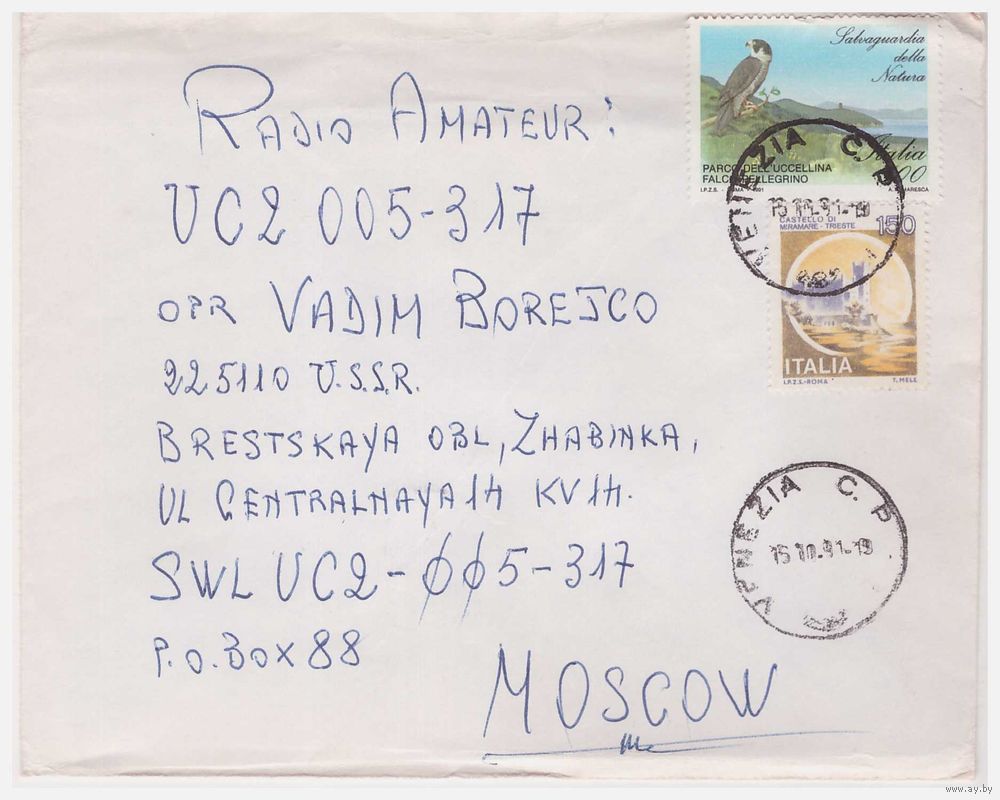 RADIO AMATEUR:
UC2 005-317
OPR VADIM BOREJCO
225110 U.S.S.R.
BRESTSKAYA OBL, ZHABINKA,
UL CENTRALNAYA 14 KV 14.
SWL UC2-ØØ5-317
P.O. BOX 88
MOSCOW
Salvaguardia
della
Natura
Italia
PARCO DELL'UCCELLINA
FALCO PELLEGRINO
I.P.Z.S. - ROMA - 1991
CASTELLO DI
MIRAMARE - TRIESTE
150
ITALIA
I.P.Z.S.-ROMA T. MELE
VENEZIA C. P
15.10.91-19
VENEZIA C. P
15.10.91-19
www.ay.by